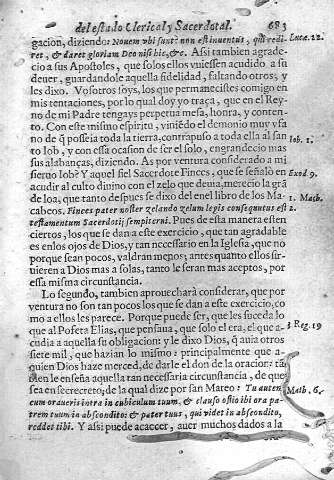 del estado Clerical y Sacerdotal. 683
gacion, diziendo: Nonem vbi sunt? non est inuentus, qui redi- Luca. 22.
ret, & daret gloriam Deo nisi hic, &c. Assi tambien agrade-
cio a sus Apostoles, que solos ellos vuiessen acudido a su
deuer, guardandole aquella fidelidad, faltando otros; y
les dixo. Vosotros soys, los que permanecistes comigo en
mis tentaciones, por lo qual doy yo traça, que en el Rey-
no de mi Padre tengays perpetua mesa, honra, y conten-
to. Con este mismo espiritu, viniédo el demonio muy vfa
no de q̃ posseia toda la tierra, contrapuso a toda ella al san
to Iob, y con essa ocasion de ser el solo, engrandecio mas Iob. 1.
sus alabanças, diziendo. As por ventura considerado a mi
sieruo Iob? Y aquel fiel Sacerdote Finees, que se señalo en Exod 9.
acudir al culto diuino con el zelo que deuia, merecio la grã
de loa, que tanto despues se dixo del en el libro de los Ma- 1. Mach.
cabeos. Finees pater noster zelando zelum legis consequutus est 2.
testamentum Sacerdotij sempiterni. Pues de esta manera esten
ciertos, los que se dan a este exercicio, que tan agradable
es en los ojos de Dios, y tan necessario en la Iglesia, que no
porque sean pocos, valdran menos; antes quanto ellos sir-
uieren a Dios mas a solas, tanto le seran mas aceptos, por
essa misma circunstancia.
Lo segundo, tambien aprouechará considerar, que por
ventura no son tan pocos los que se dan a este exercicio, co
mo a ellos les parece. Porque puede ser, que les suceda lo
que al Pofeta Elias, que pensaua, que solo el era, el que a- 3 Reg. 19
cudia a aquella su obligacion: y le dixo Dios, q̃ auia otros
siete mil, que hazian lo mismo: principalmente que a-
quien Dios haze merced, de darle el don de la oracion: tã-
bien le enseña aquella tan necessaria circunstancia, de que
sea en secrecreto; de la qual dize por san Mateo: Tu autem Math. 6.
cum oraueris intra in cubiculum tuum, & clauso ostio ibi ora pa
trem tuum in abscondito: & pater tuus, qui videt in abscondito,
reddet tibi. Y assi puede acaecer, auer muchos dados a la